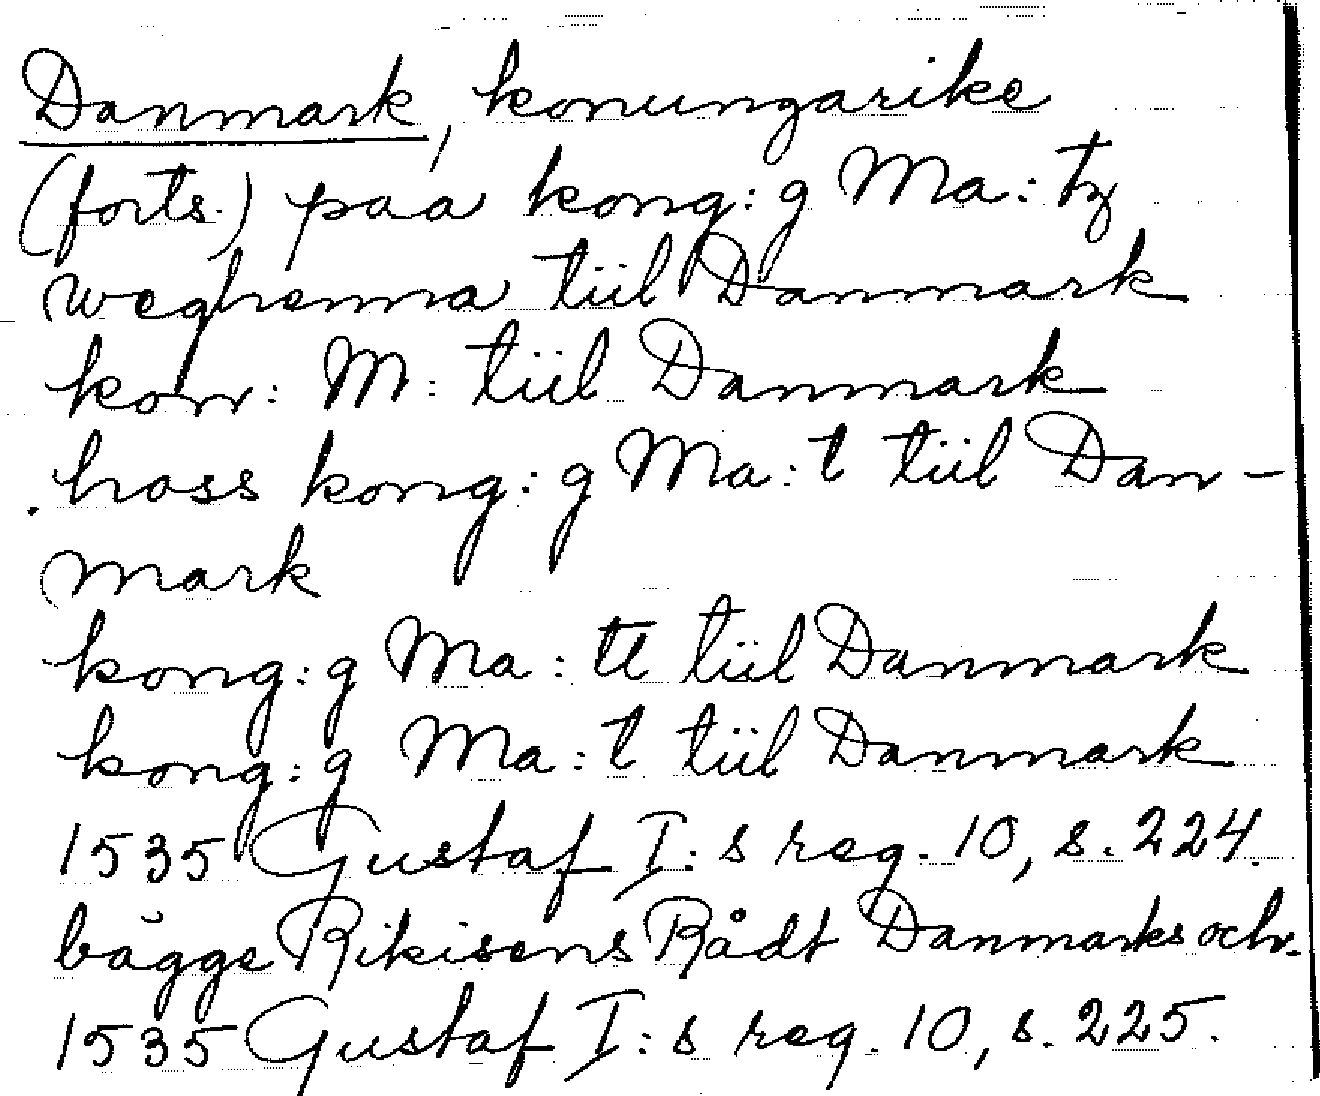 Danmark, konungarike
(forts.) paa kong:g Ma:tz
weghenna tiil Danmark
kon: M: tiil Danmark
hoss kong:g Ma:t tiil Dan-
mark
kong:g Ma:tt tiil Danmark
kong:g Ma:t tiil Danmark
1535 Gustaf I:s reg. 10, s. 224.
bägge Rikisens Rådt Danmarks och
1535 Gustaf I:s reg. 10, s. 225.